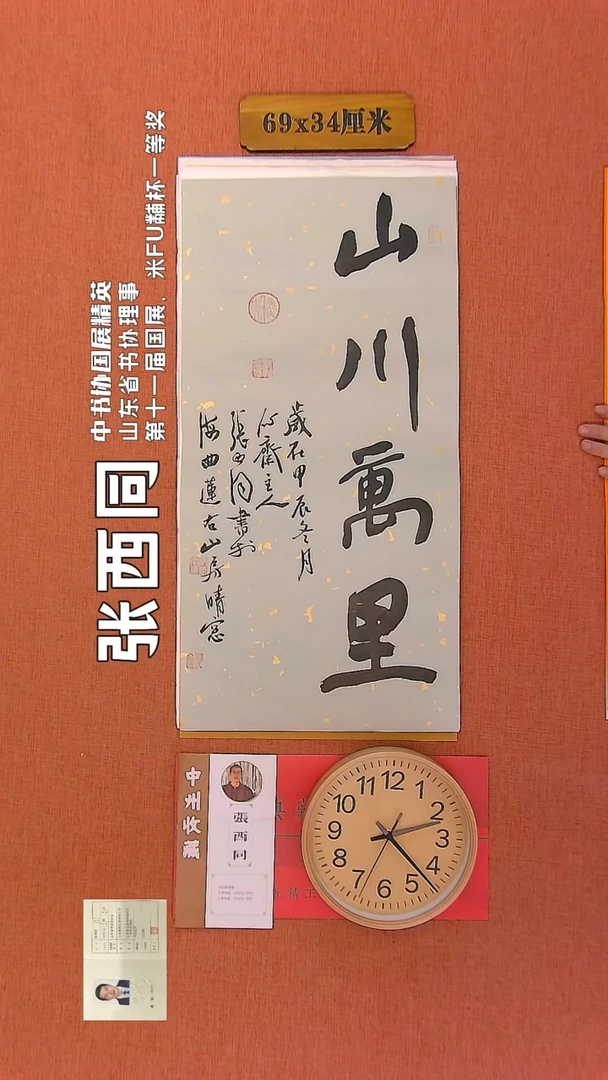 69x34厘米
山川萬里
歲在甲辰冬月
心齋主人
張西同書於
海曲蓮石山房晴窓
中书协国展精英
山东省书协理事
第十一届国展、米FU黼杯一等奖
张西同
張西同
12
1
2
3
4
5
6
7
8
9
10
11